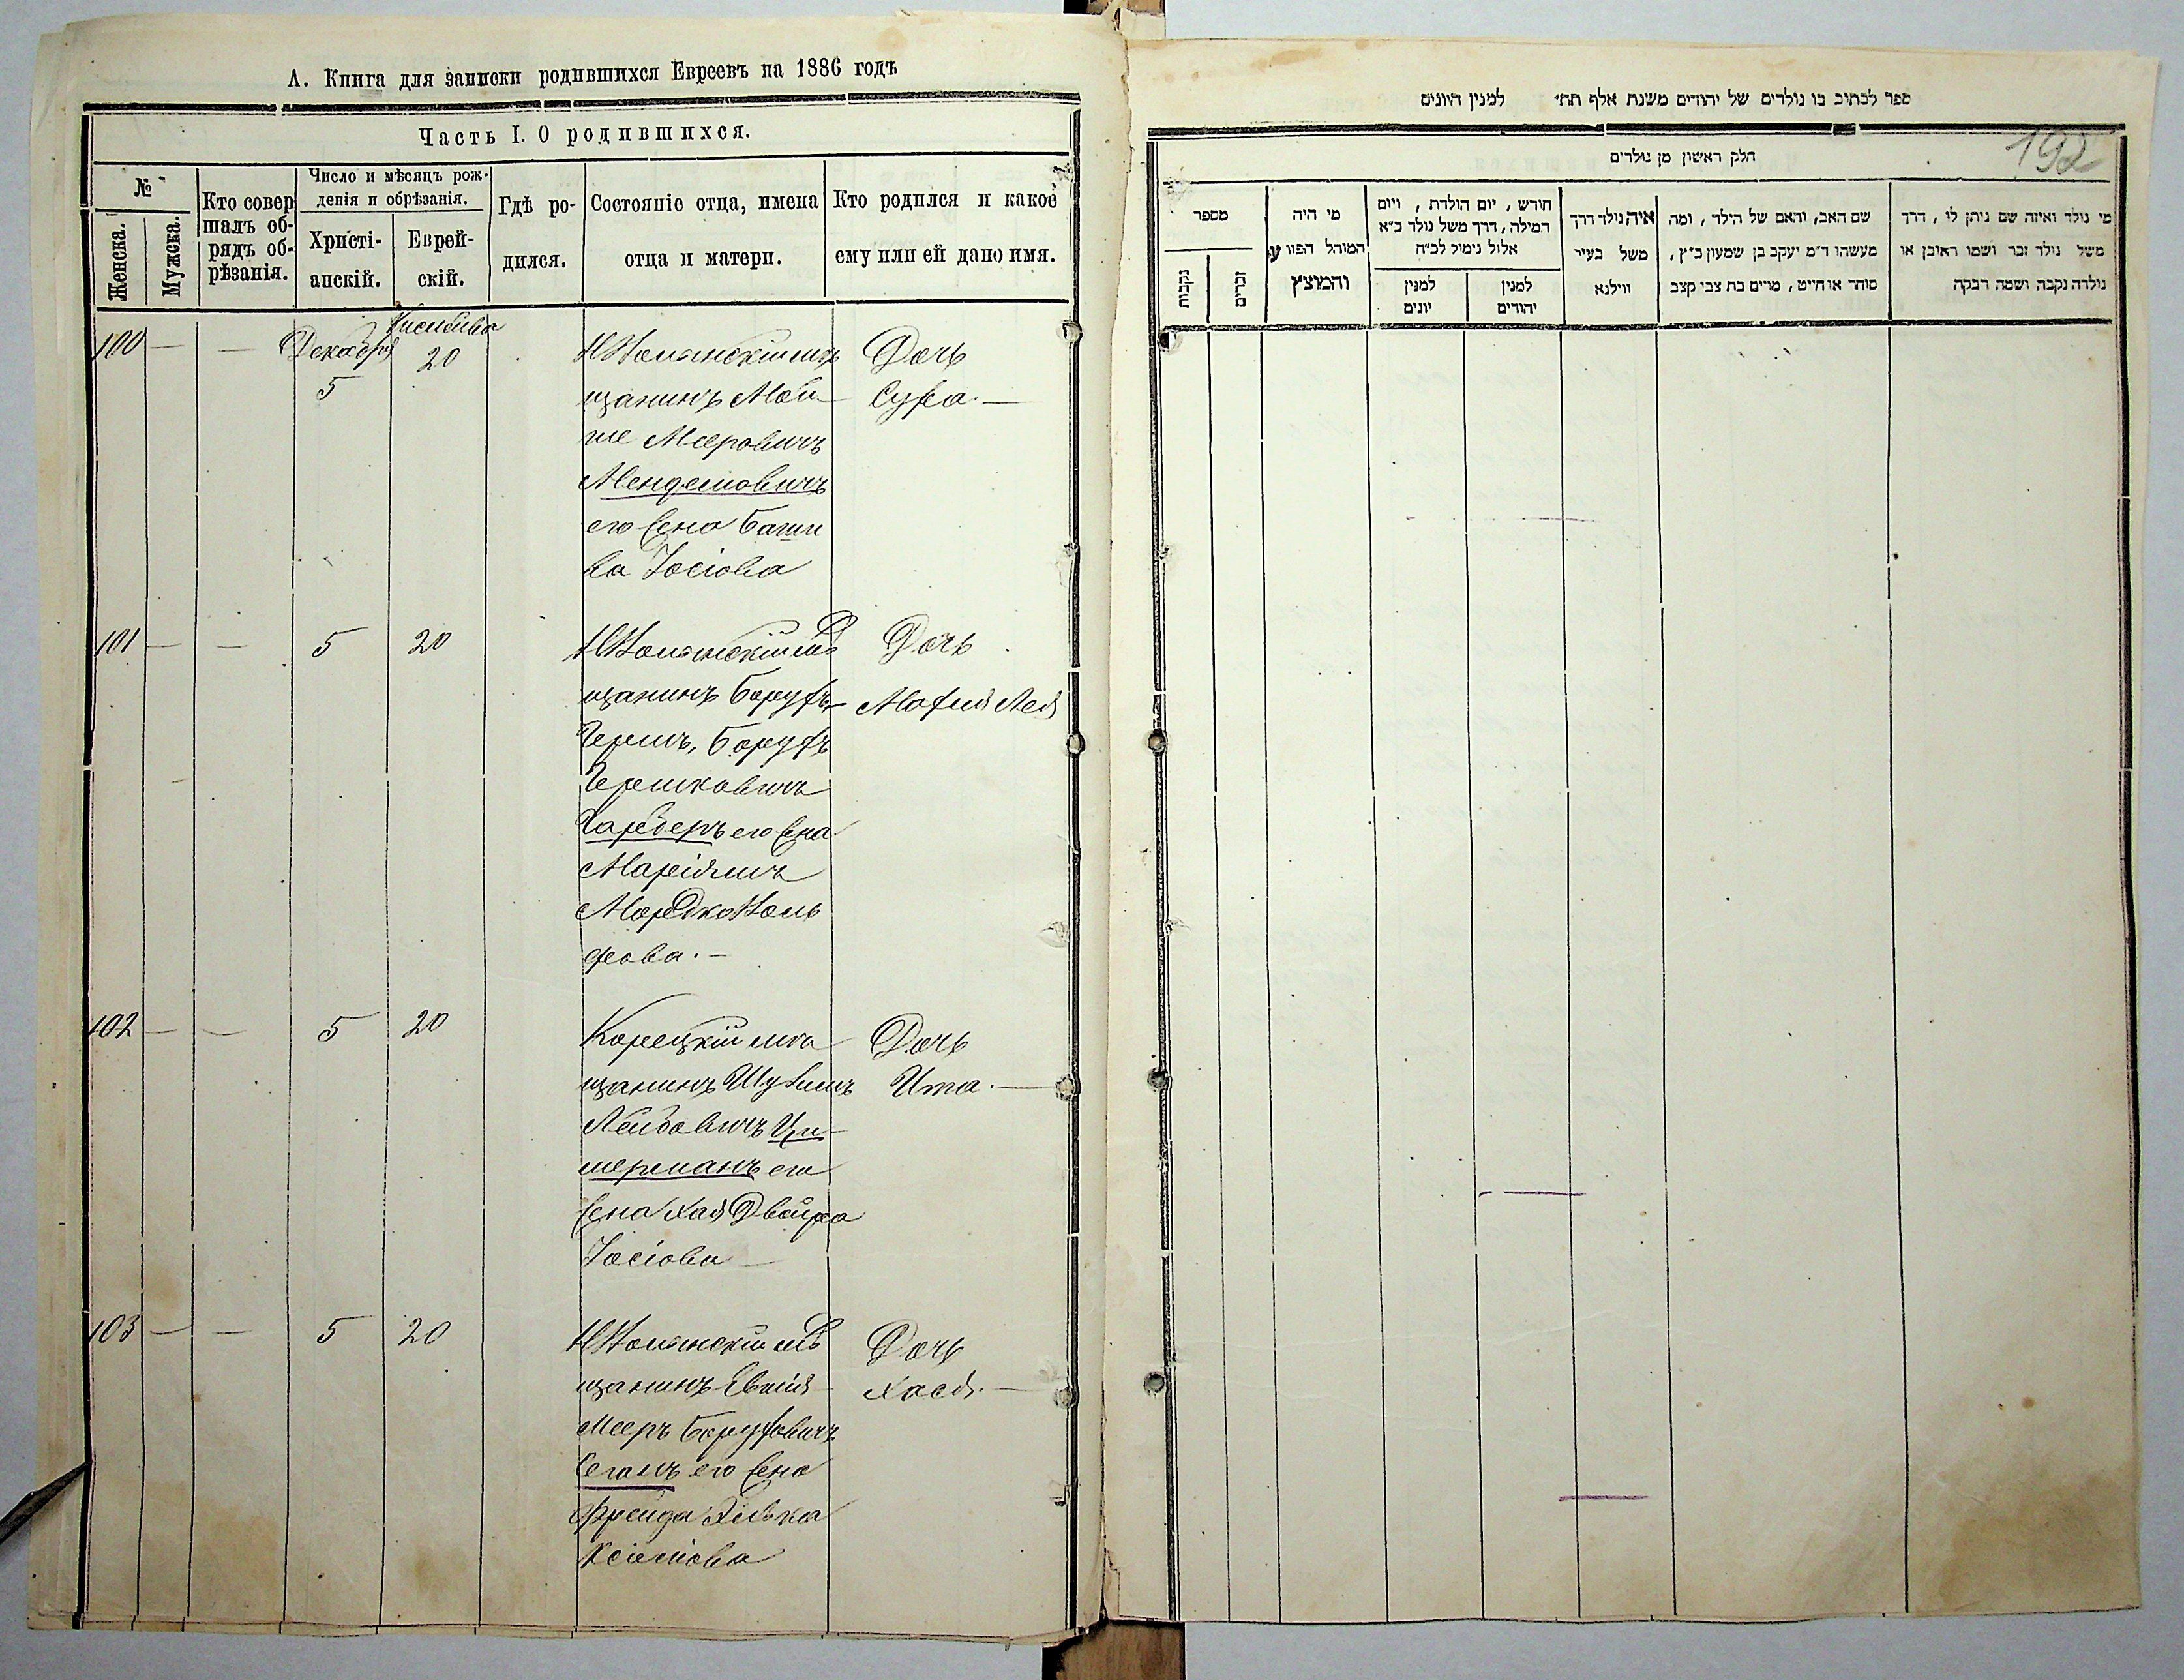 А. Книга для записки родившихся Евреевъ на 1886 годъ
Часть I. О родившихся.
№
Женска.
Мужска.
Кто совер
шалъ об-
рядъ об-
рѣзанія.
Число и мѣсяцъ рож-
денія и обрѣзанія.
Христі-
анскій.
Еврей-
скій.
Гдѣ ро-
дился.
Состояніе отца, имена
отца и матери.
Кто родился и какое
ему или ей дано имя.
100 — — Декабря
5 20
щанинъ Мой
ше Меровичъ
Менделовичъ
его жена
ва Іосіова
Дочь
Сура. —
101 — — 5 20
щанинъ Борухъ
Гершъ, Борухъ
Гершковичъ
его жена
Маріямъ
Дочь
Лея
102 — — 5 20
Корецкій мѣ
щанинъ
Лейбовичъ Ци-
мерманъ его
жена Хая Двойра
Іосіова —
Дочь
Ита. —
103 — — 5 20
щанинъ
Мееръ Боруховичъ
его жена
Фрейда
Дочь
Хася. —
ספר לכתוב בו נולדים של יהודים משנת אלף תת״ למנין היונים
192
חלק ראשון מן נולדים
מספר
נקבות
זכרים
מי היה
המוהל הפורע
והמוצץ
חודש, יום הולדת, ויום
המילה, דרך משל נולד כ״א
אלול נימול לכ״ח
למנין
יונים
למנין
יהודים
איה נולד דרך
משל בעיר
ווילנא
שם האב, והאם של הילד, ומה
מעשהו ד״מ יעקב בן שמעון כ״ץ,
סוחר או חייט, מרים בת צבי קצב
מי נולד ואיזה שם ניתן לו, דרך
משל נולד זכר ושמו ראובן או
נולדה נקבה ושמה רבקה